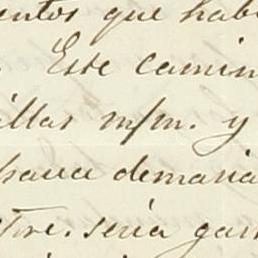 entos que hab
Este camin
illas m/m. y
hace demasia
tre. sería gas